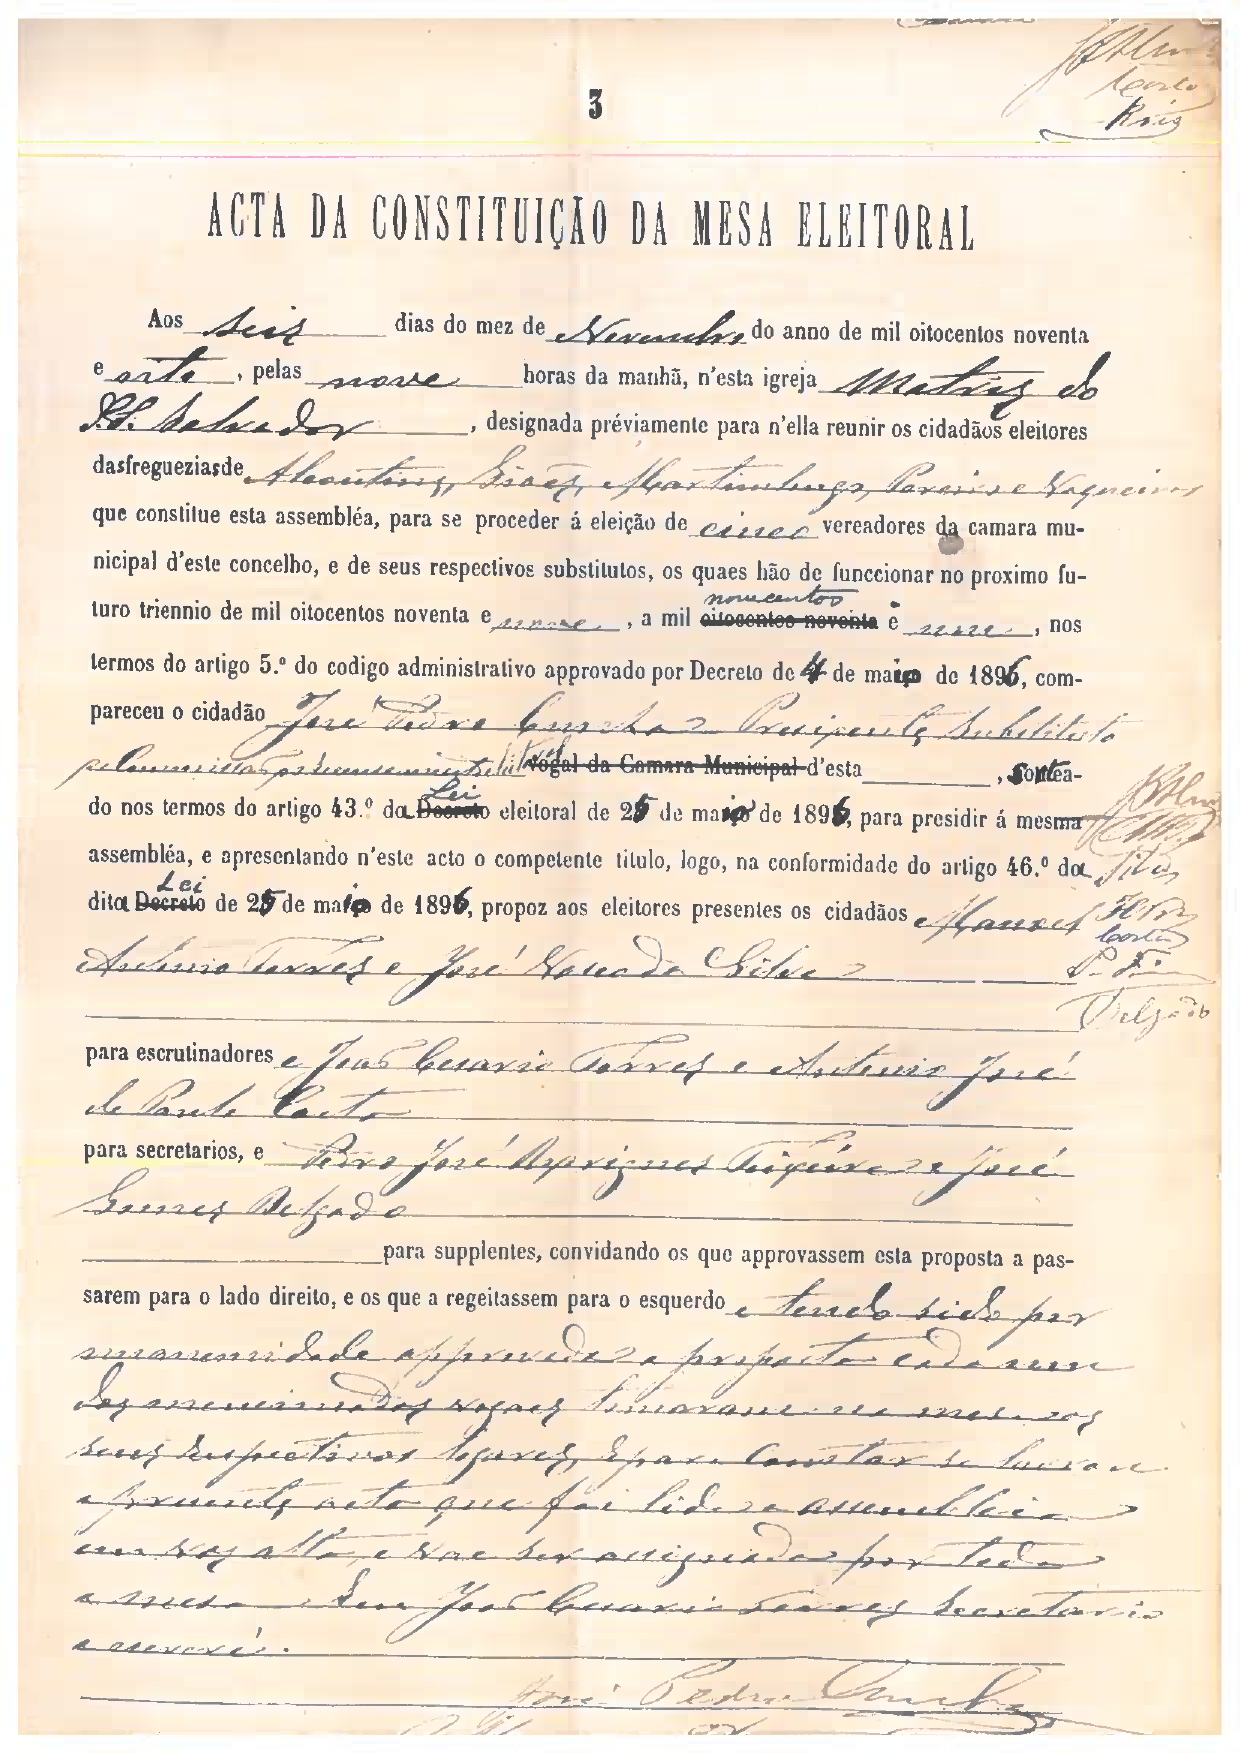 3
Costa
Roiz
ACTA DA CONSTITUIÇÃO DA MESA ELEITORAL
Aos seis dias do mez de Novembro do anno de mil oitocentos noventa
e oito, pelas nove horas da manhã, n'esta igreja Matriz do
S. Salvador, designada préviamente para n'ella reunir os cidadãos eleitores
das freguezias de Alcoutim, Giões, Martimlongo, Pereiro e Vaqueiros
que constitue esta assembléa, para se proceder á eleição de cinco vereadores da camara mu-
nicipal d'este concelho, e de seus respectivos substitutos, os quaes hão de funccionar no proximo fu-
novecentos
turo triennio de mil oitocentos noventa e nove, a mil oitocentos noventa e um, nos
termos do artigo 5.º do codigo administrativo approvado por Decreto de 4 de maio de 1896, com-
pareceu o cidadão José Pedro Cunha Presidente substituto
pela Commissão Vogal da Camara Municipal d'esta, sortea-
Lei
do nos termos do artigo 43.º da Decreto eleitoral de 25 de maio de 1896, para presidir á mesma
assembléa, e apresentando n'este acto o competente titulo, logo, na conformidade do artigo 46.º da
Lei
dita Decreto de 25 de maio de 1896, propoz aos eleitores presentes os cidadãos Manoel
Costa
António Torres e José da Silva
Delgado
para escrutinadores e João Cesario Torres e Antonio José
de
para secretarios, e Pedro José Teixeira e José
Gomes Delgado
para supplentes, convidando os que approvassem esta proposta a pas-
sarem para o lado direito, e os que a regeitassem para o esquerdo e tendo sido por
unanimidade approvada a proposta cada um
dos mencionados vogaes tomaram na mesa os
seus respectivos logares, e para constar se lavrou
a presente acta que foi lida a assembleia
em voz alta, e vae ser assignada por toda
a mesa. Eu João Cesario Torres Secretario
a escrevi.
José Pedro Cunha